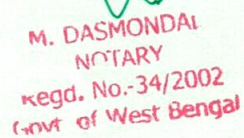 M. DASMONDAL
NOTARY
Regd. No.-34/2002
Govt of West Bengal